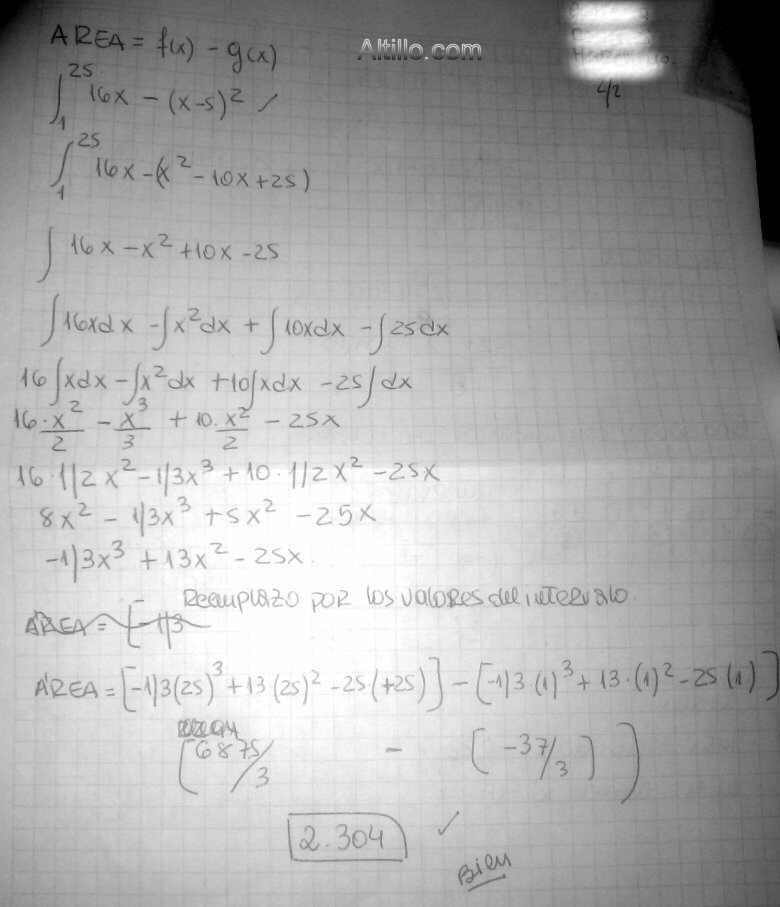 AREA = f(x) - g(x)
Altillo.com
4/2
∫₁²⁵ 16x - (x-5)²
∫₁²⁵ 16x - (x² - 10x + 25)
∫ 16x - x² + 10x - 25
∫16xdx - ∫x²dx + ∫10xdx - ∫25dx
16∫xdx - ∫x²dx + 10∫xdx - 25∫dx
16·x²/2 - x³/3 + 10·x²/2 - 25x
16·1/2x² - 1/3x³ + 10·1/2x² - 25x
8x² - 1/3x³ + 5x² - 25x
-1/3x³ + 13x² - 25x
Reemplazo por los valores del intervalo.
AREA = [-1/3
AREA = [-1/3(25)³ + 13(25)² - 25(+25)] - [-1/3·(1)³ + 13·(1)² - 25(1)]
[6875/3 - [-37/3])
2.304 ✓
Bien